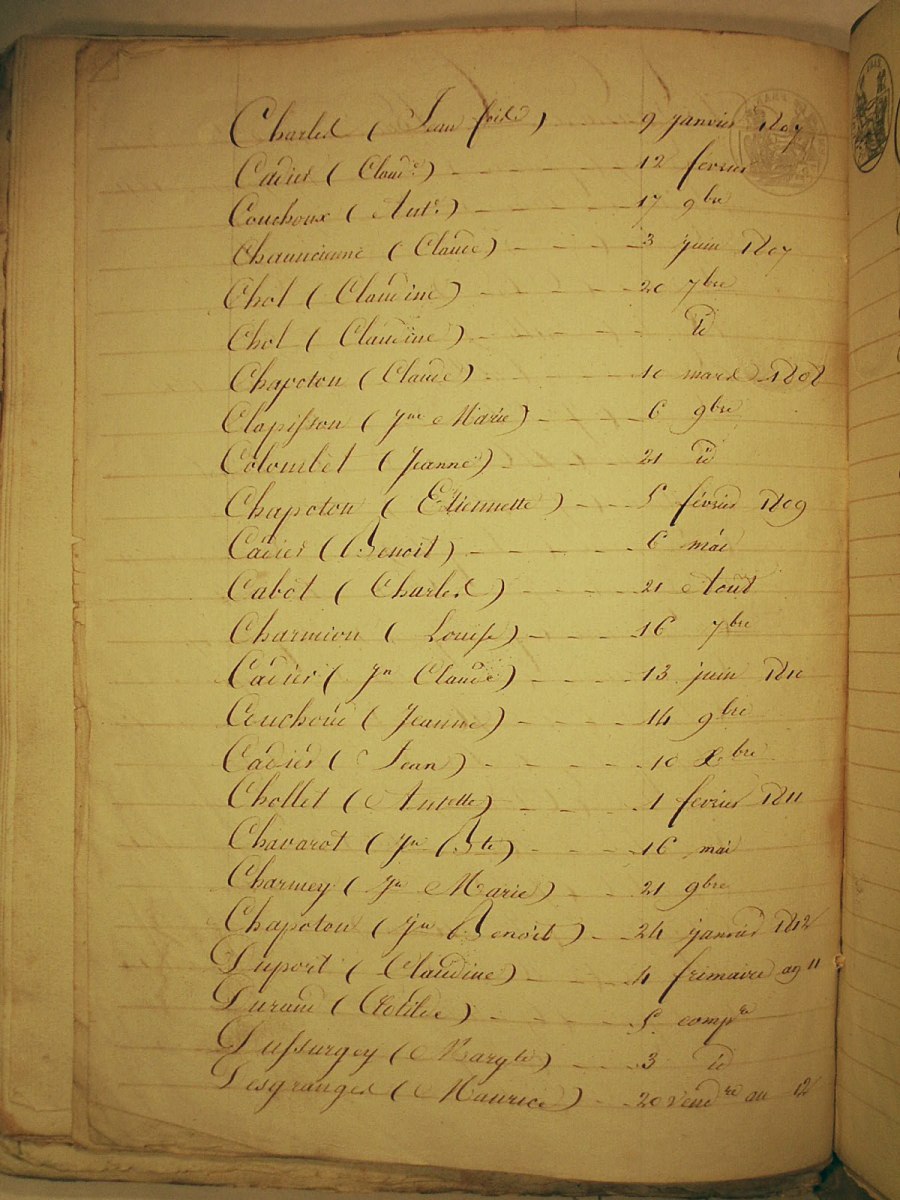 Charles (Jean ) 9 janvier 1807
Cadier (Claude) 12 fevrier
Couchoux (Ant.e) 17 9bre
(Claude) 3 juin 1807
Chol (Claudine) 20 7bre
Chol (Claudine) id
Chapoton (Claude) 10 mars 1808
Clapisson (Jne Marie) 6 9bre
Colombet (Jeanne) 21 id
Chapoton (Etiennette) 5 février 1809
Cadier (Benoit) 6 mai
Cabot (Charles) 21 Aout
Charmion (Louise) 16 7bre
Cadier (Jn Claude) 13 juin 1810
Couchoud (Jeanne) 14 9bre
Cadier (Jean) 10 Xbre
Chollet (Antette) 1 fevrier 1811
Chavarot (Jn Bte) 16 mai
Charmey (Jn Marie) 21 9bre
Chapoton (Jn Benoit) 24 janvier 1812
Duport (Claudine) 4 frimaire an 11
Durand (Clotilde) 5 compre
Dussurgey (Margte) 3 id
Desgranges (Maurice) 20 Vendre an 12